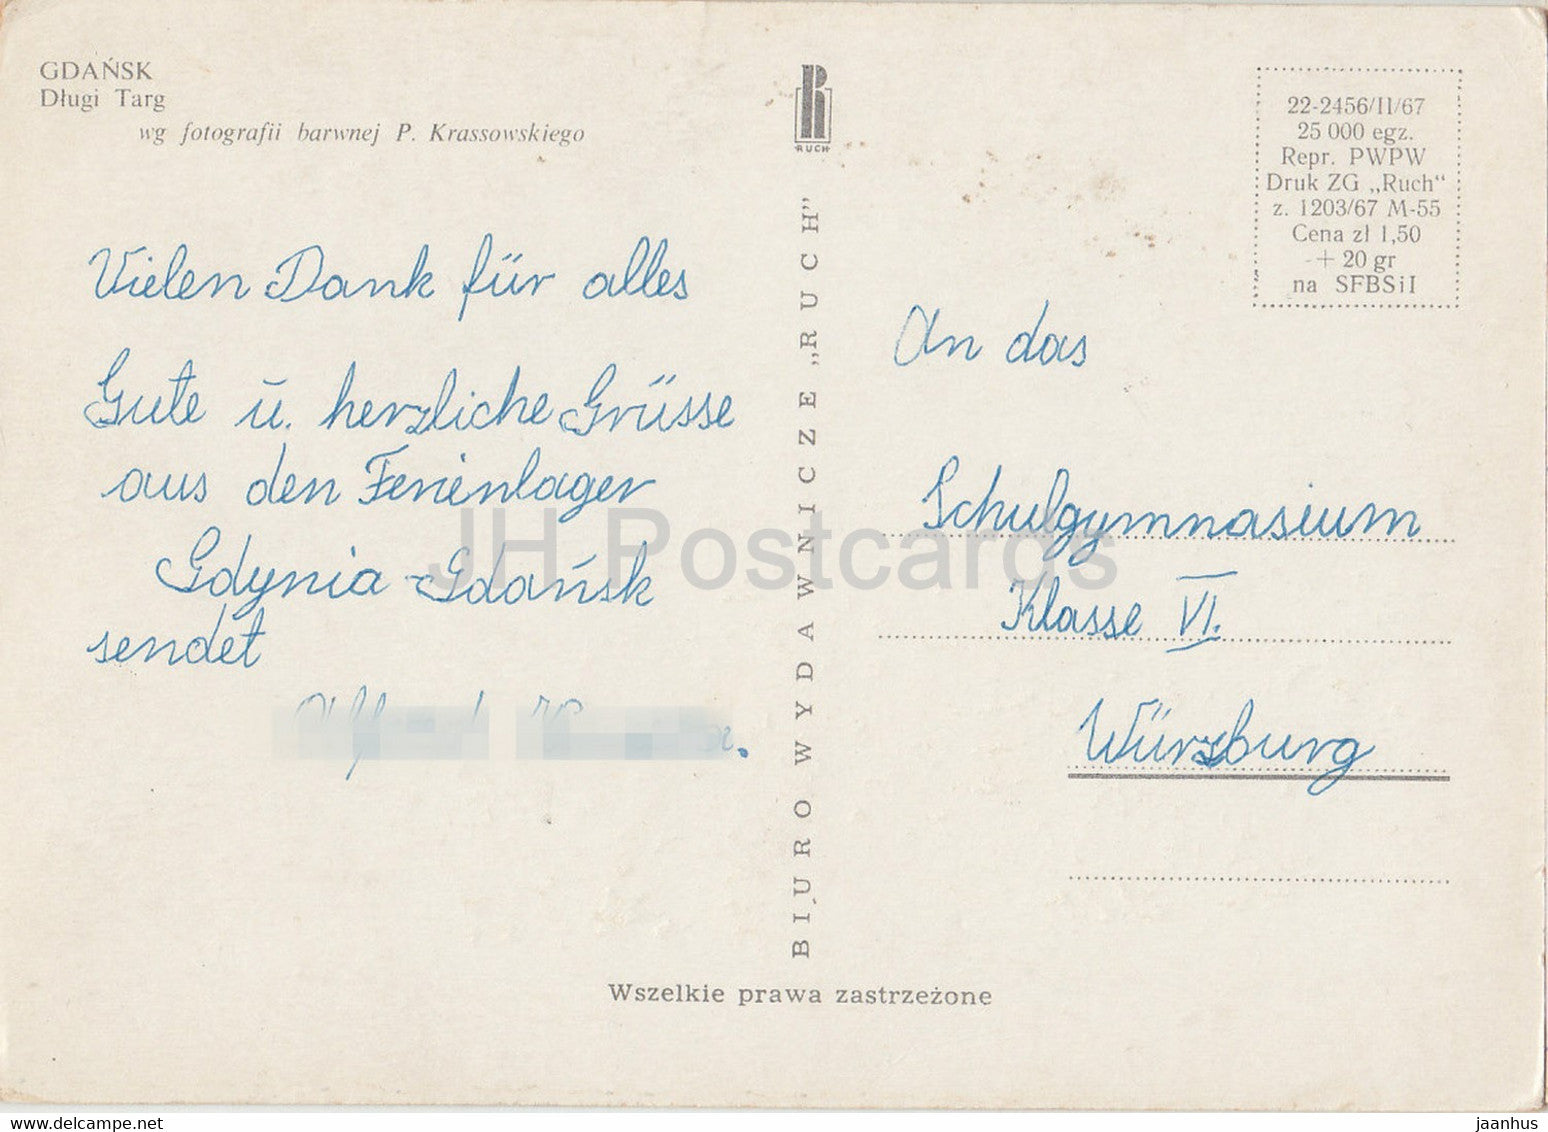 GDAŃSK
Długi Targ
wg fotografii barwnej P. Krassowskiego
Vielen Dank für alles
Gute u. herzliche Grüsse
aus den Ferienlager
Gdynia - Gdańsk
sendet
RUCH
BIURO WYDAWNICZE „RUCH"
22-2456/II/67
25 000 egz.
Repr. PWPW
Druk ZG „Ruch"
z. 1203/67 M-55
Cena zł 1,50
+ 20 gr
na SFBSiI
An das
Schulgymnasium
Klasse VI.
Würzburg
Wszelkie prawa zastrzeżone
JH Postcards
www.delcampe.net
jaanhus